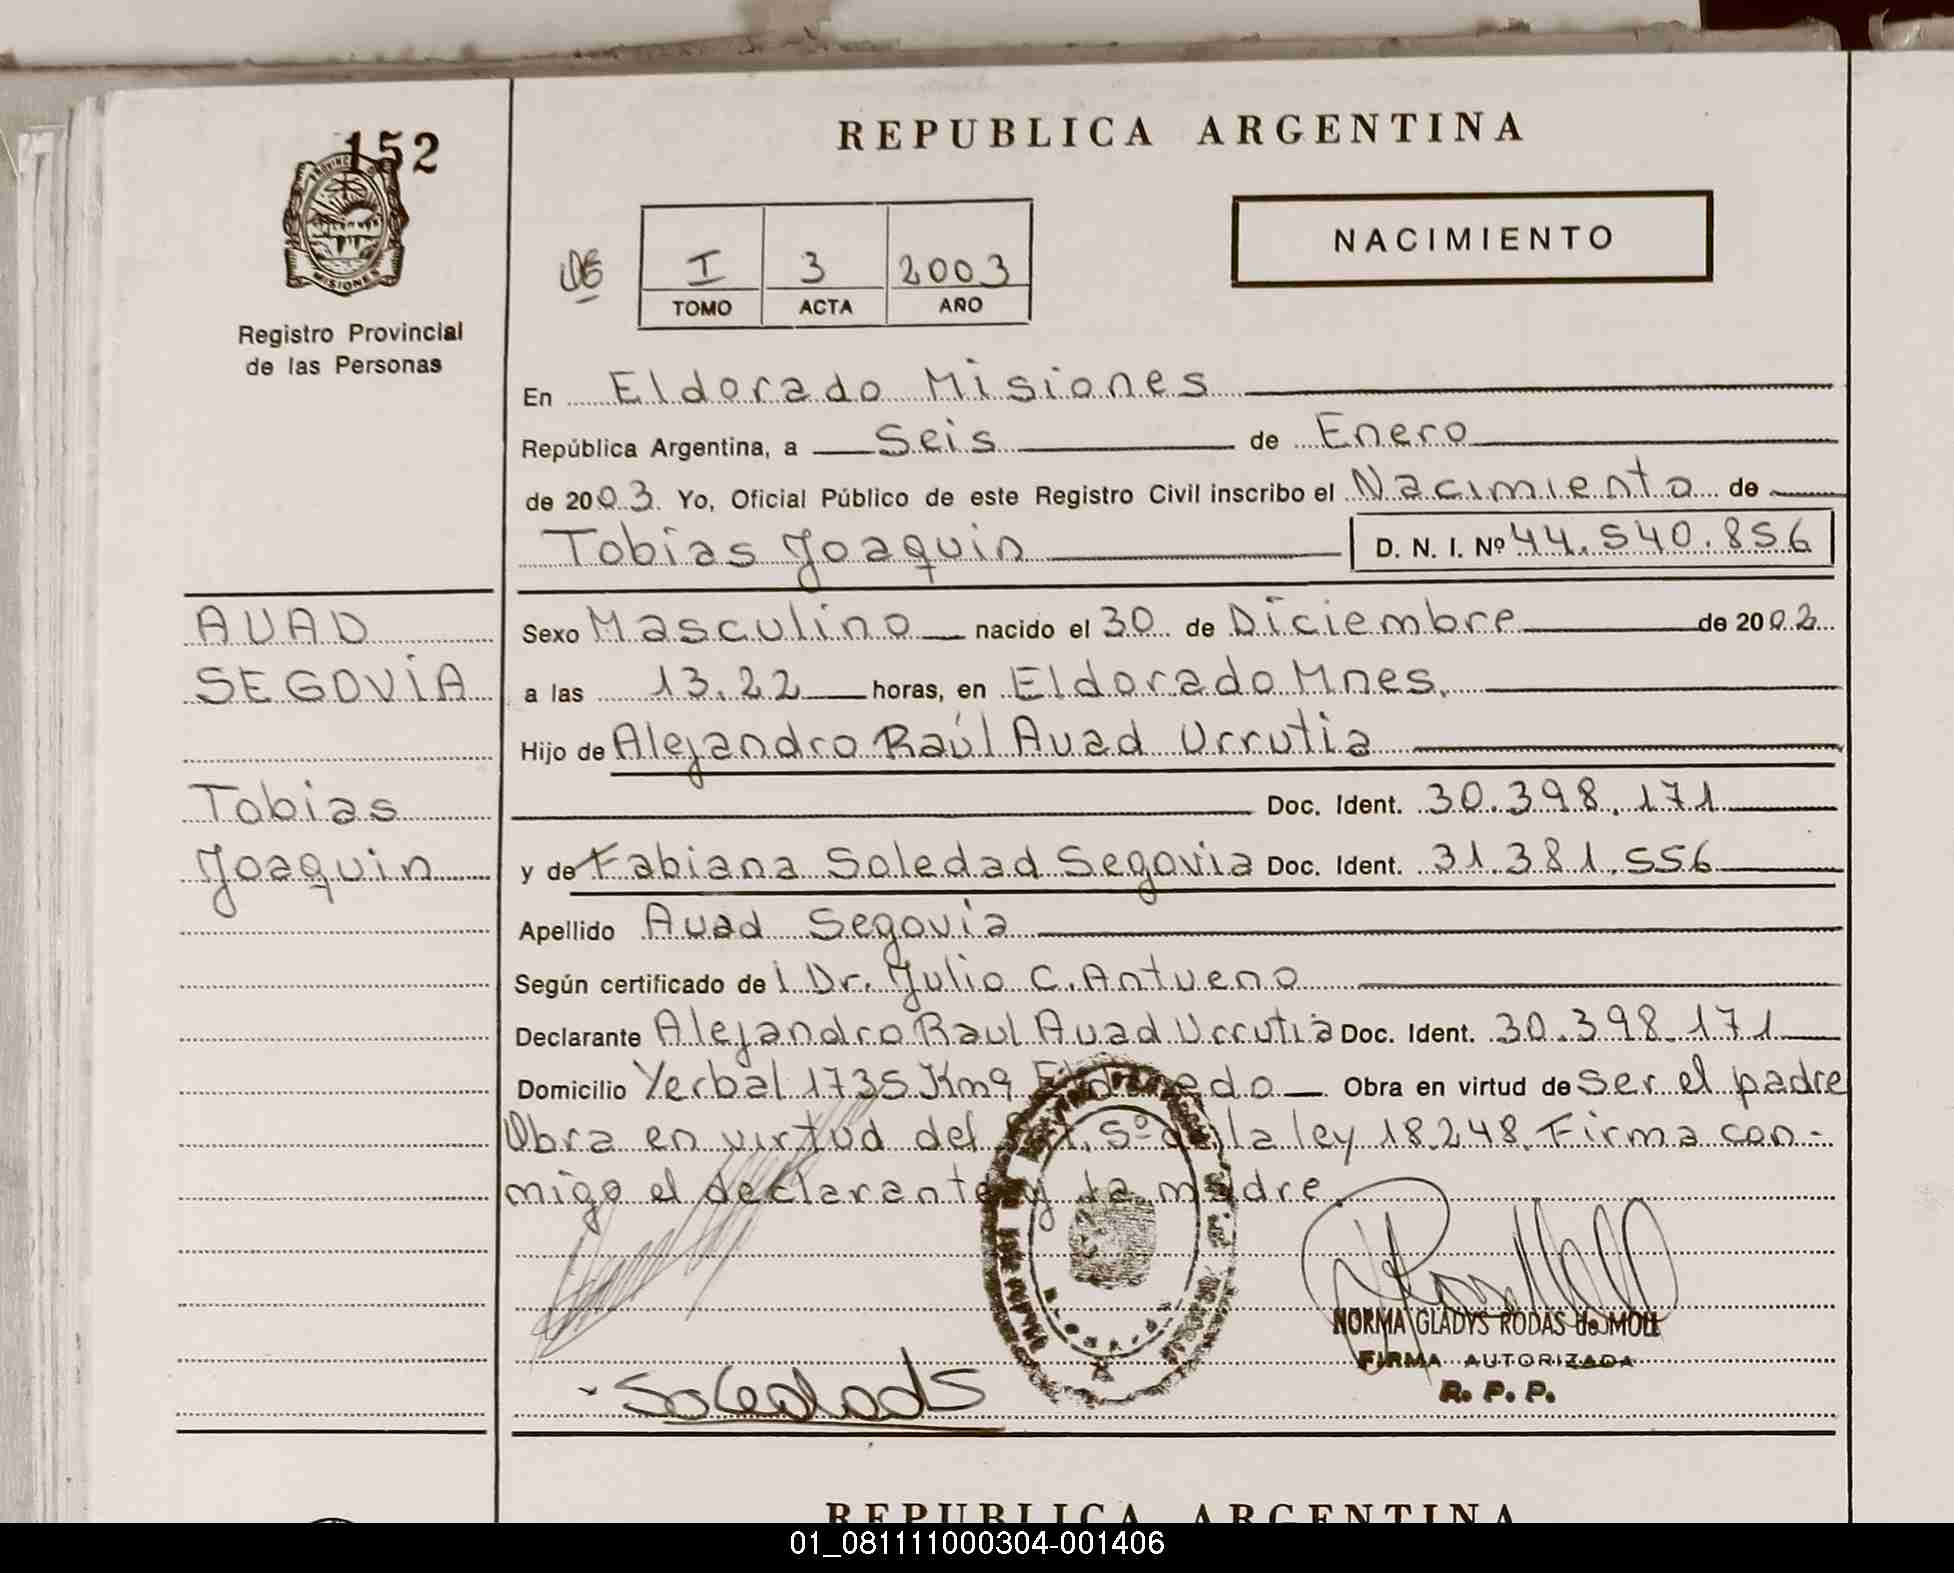 152
PROVINCIA DE
MISIONES
Registro Provincial
de las Personas
REPUBLICA ARGENTINA
I 3 2003
TOMO ACTA AÑO
NACIMIENTO
En Eldorado Misiones
República Argentina, a Seis de Enero
de 2003. Yo, Oficial Público de este Registro Civil inscribo el Nacimiento de
Tobias Joaquin D. N. I. Nº 44.540.856
AUAD
SEGOVIA
Tobias
Joaquin
Sexo Masculino nacido el 30 de Diciembre de 2002
a las 13.22 horas, en Eldorado Mnes.
Hijo de Alejandro Raúl Auad Urrutia
Doc. Ident. 30.398.171
y de Fabiana Soledad Segovia Doc. Ident. 31.381.556
Apellido Auad Segovia
Según certificado de l Dr. Julio C. Antueno
Declarante Alejandro Raul Auad Urrutia Doc. Ident. 30.398.171
Domicilio Yerbal 1735 Km9 Eldorado Obra en virtud de ser el padre
Obra en virtud del Art. 5º de la ley 18.248. Firma con-
migo el declarante y la madre.
NORMA GLADYS RODAS de MOLL
FIRMA AUTORIZADA
R. P. P.
SoledadS
REPUBLICA ARGENTINA
01_081111000304-001406